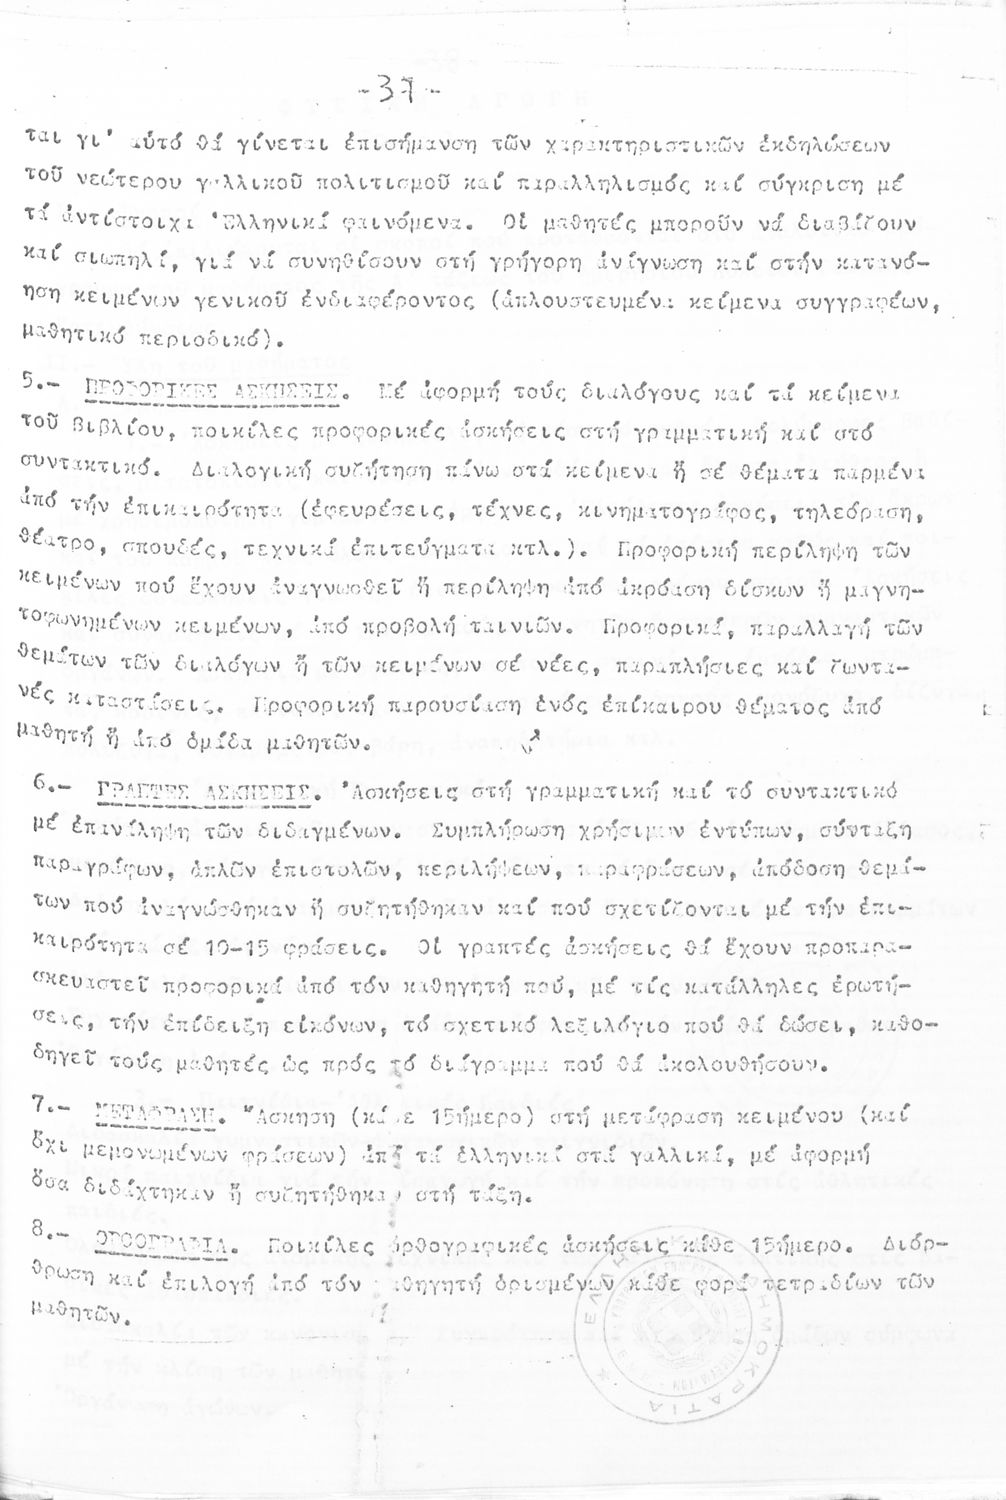 -37-
ται γι' αὐτό θά γίνεται ἐπισήμανση τῶν χαρακτηριστικῶν ἐκδηλώσεων
τοῦ νεώτερου γαλλικοῦ πολιτισμοῦ καί παραλληλισμός καί σύγκριση μέ
τά ἀντίστοιχα Ἑλληνικά φαινόμενα. Οἱ μαθητές μποροῦν νά διαβάζουν
καί σιωπηλά, γιά νά συνηθίσουν στή γρήγορη ἀνάγνωση καί στήν κατανό-
ηση κειμένων γενικοῦ ἐνδιαφέροντος (ἁπλουστευμένα κείμενα συγγραφέων,
μαθητικό περιοδικό).
5.- ΠΡΟΦΟΡΙΚΕΣ ΑΣΚΗΣΕΙΣ. Μέ ἀφορμή τούς διαλόγους καί τά κείμενα
τοῦ βιβλίου, ποικίλες προφορικές ἀσκήσεις στή γραμματική καί στό
συντακτικό. Διαλογική συζήτηση πάνω στά κείμενα ἤ σέ θέματα παρμένα
ἀπό τήν ἐπικαιρότητα (ἐφευρέσεις, τέχνες, κινηματογράφος, τηλεόραση,
θέατρο, σπουδές, τεχνικά ἐπιτεύγματα κτλ.). Προφορική περίληψη τῶν
κειμένων πού ἔχουν ἀναγνωσθεῖ ἤ περίληψη ἀπό ἀκρόαση δίσκων ἤ μαγνη-
τοφωνημένων κειμένων, ἀπό προβολή ταινιῶν. Προφορικά, παραλλαγή τῶν
θεμάτων τῶν διαλόγων ἤ τῶν κειμένων σέ νέες, παραπλήσιες καί ζωντα-
νές καταστάσεις. Προφορική παρουσίαση ἑνός ἐπίκαιρου θέματος ἀπό
μαθητή ἤ ἀπό ὁμάδα μαθητῶν.
6.- ΓΡΑΠΤΕΣ ΑΣΚΗΣΕΙΣ. Ἀσκήσεις στή γραμματική καί τό συντακτικό
μέ ἐπανάληψη τῶν διδαγμένων. Συμπλήρωση χρήσιμων ἐντύπων, σύνταξη
παραγράφων, ἁπλῶν ἐπιστολῶν, περιλήψεων, παραφράσεων, ἀπόδοση θεμά-
των πού ἀναγνώσθηκαν ἤ συζητήθηκαν καί πού σχετίζονται μέ τήν ἐπι-
καιρότητα σέ 10-15 φράσεις. Οἱ γραπτές ἀσκήσεις θά ἔχουν προπαρα-
σκευαστεῖ προφορικά ἀπό τόν καθηγητή πού, μέ τίς κατάλληλες ἐρωτή-
σεις, τήν ἐπίδειξη εἰκόνων, τό σχετικό λεξιλόγιο πού θά δώσει, καθο-
δηγεῖ τούς μαθητές ὡς πρός τό διάγραμμα πού θά ἀκολουθήσουν.
7.- ΜΕΤΑΦΡΑΣΗ. Ἄσκηση (κάθε 15ήμερο) στή μετάφραση κειμένου (καί
ὄχι μεμονωμένων φράσεων) ἀπό τά ἑλληνικά στά γαλλικά, μέ ἀφορμή
ὅσα διδάχτηκαν ἤ συζητήθηκαν στή τάξη.
8.- ΟΡΘΟΓΡΑΦΙΑ. Ποικίλες ὀρθογραφικές ἀσκήσεις κάθε 15ήμερο. Διόρ-
θρωση καί ἐπιλογή ἀπό τόν καθηγητή ὁρισμένων κάθε φορά τετραδίων τῶν
μαθητῶν.
ΕΛΛΗΝΙΚΗ ΔΗΜΟΚΡΑΤΙΑ